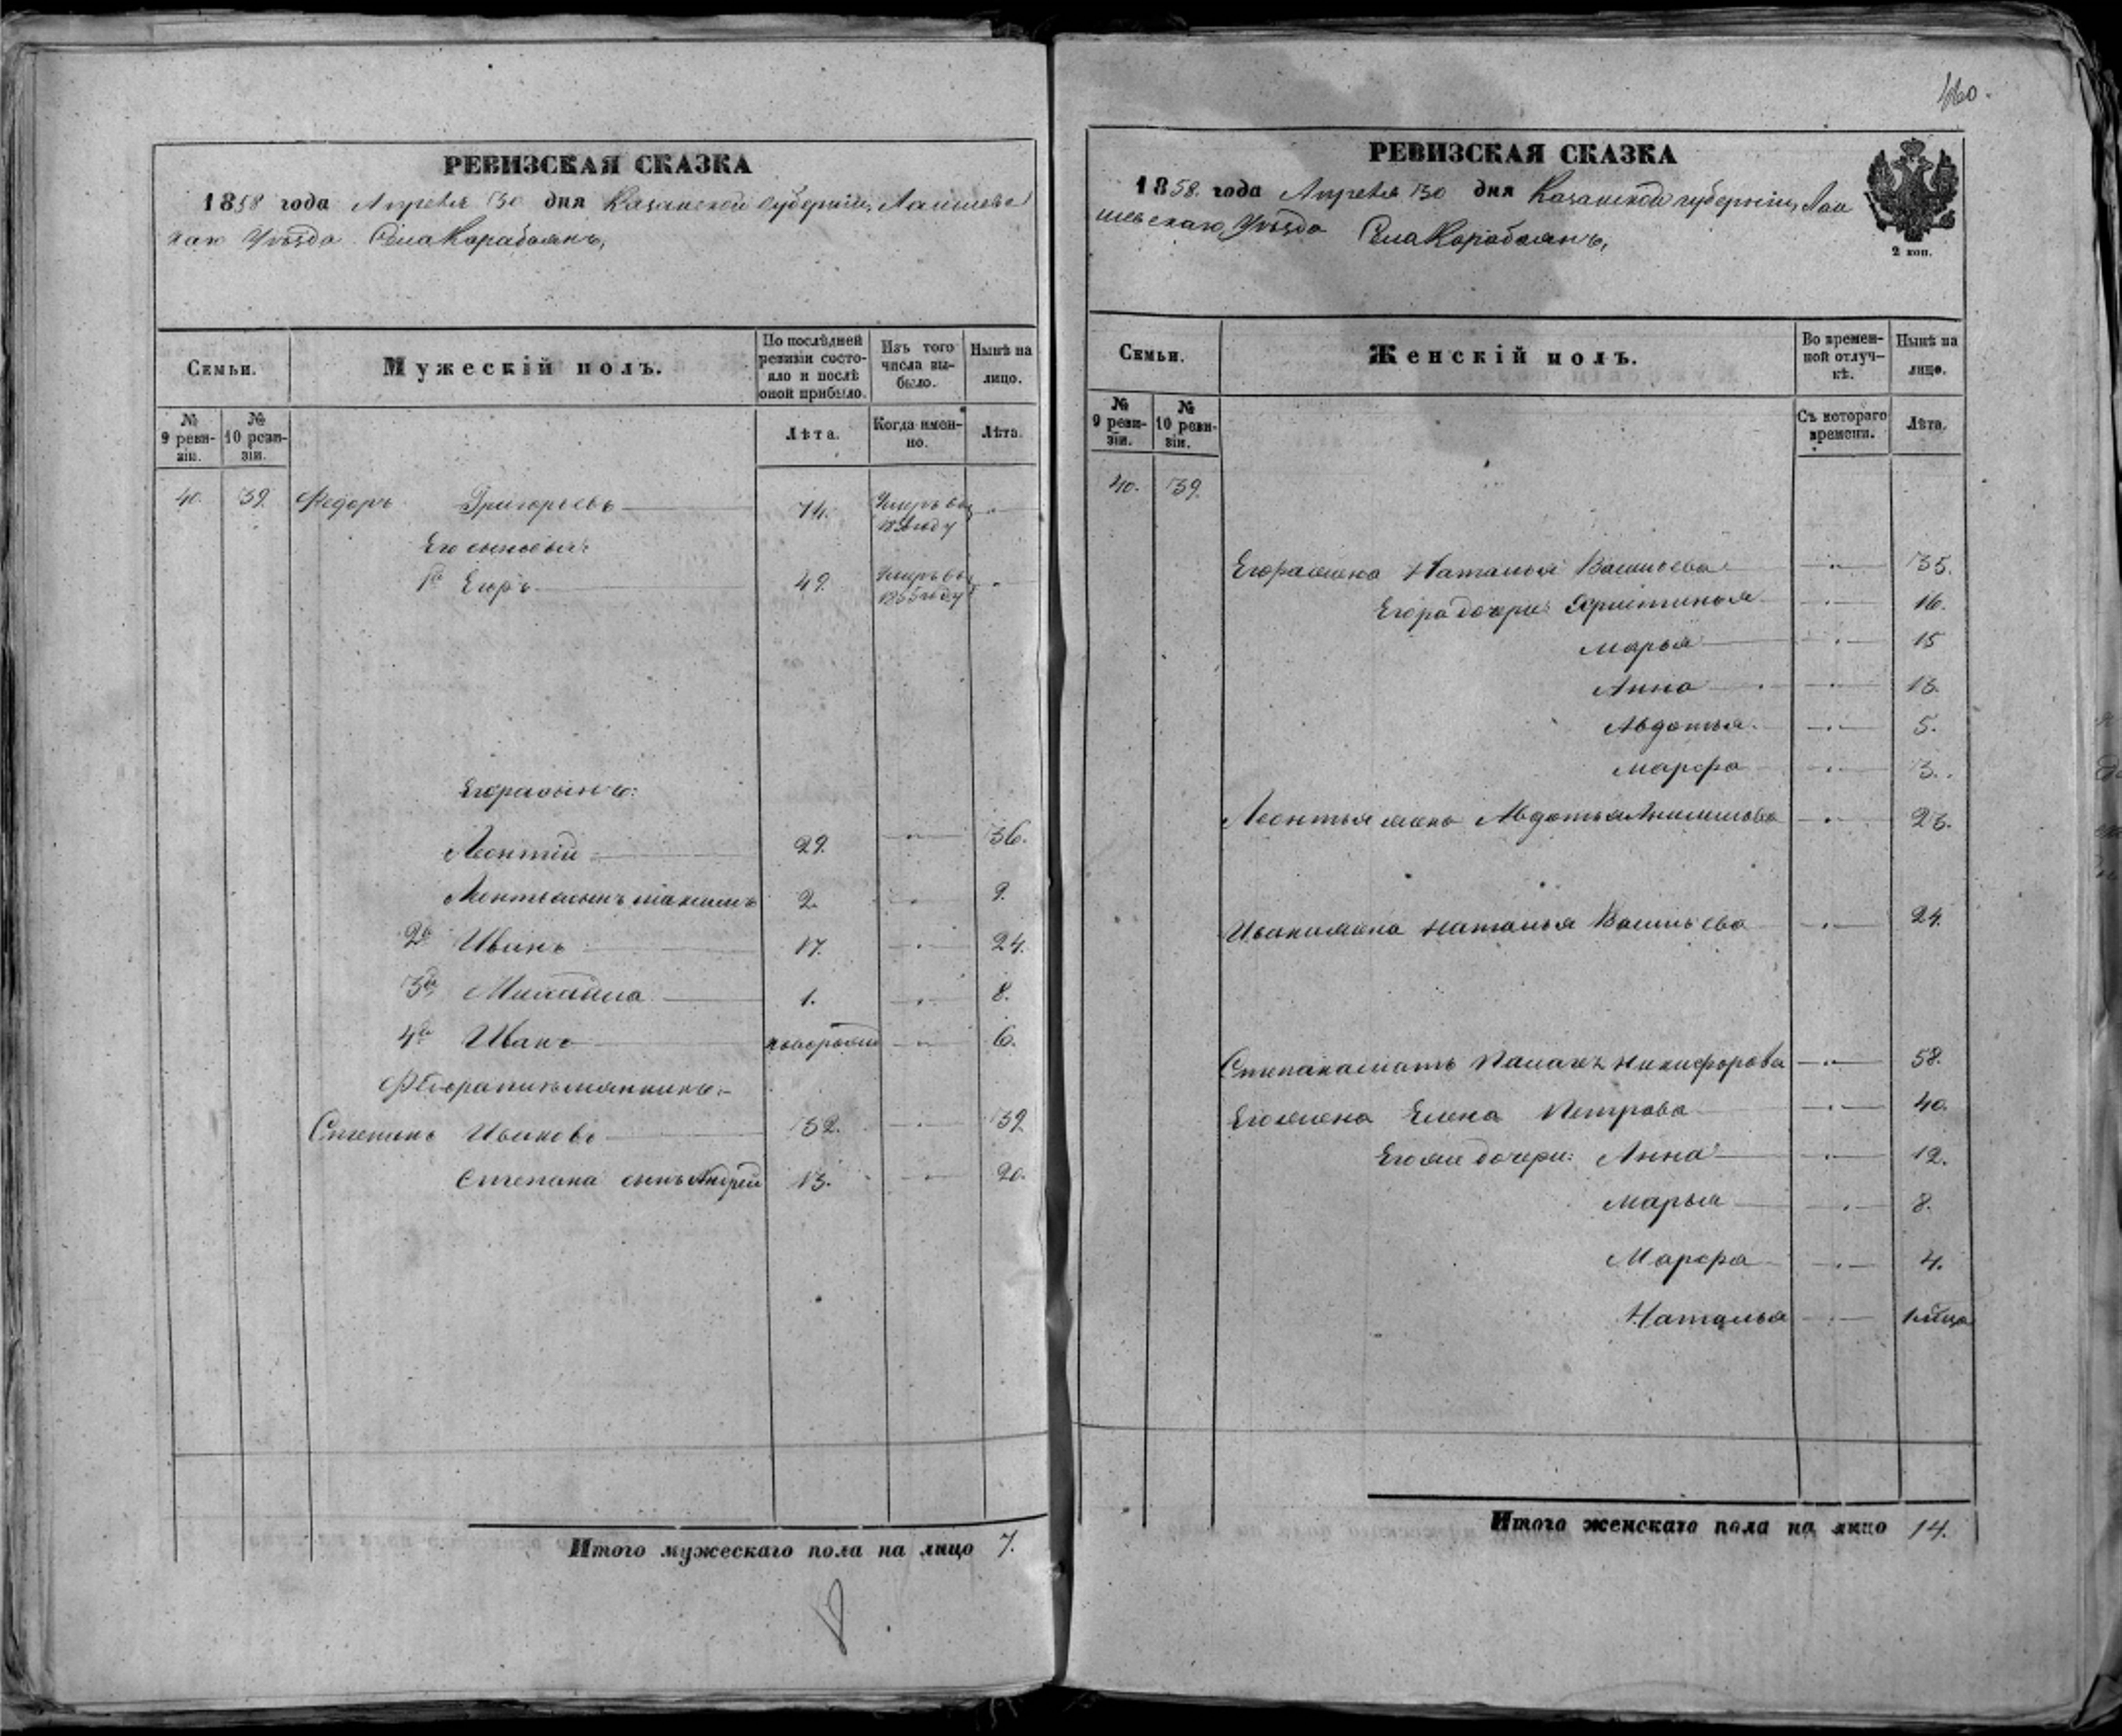 РЕВИЗСКАЯ СКАЗКА
1858 года Апреля 30 дня Казанской губерніи, Лаишевс
каго Уѣзда Села Карабаянъ,
Семьи.
Мужескій полъ.
По послѣдней ревизіи состояло и послѣ оной прибыло.
Изъ того числа выбыло.
Нынѣ на лицо.
№ 9 ревизіи.
№ 10 ревизіи.
Лѣта.
Когда именно.
Лѣта.
40. 39. Федоръ Григорьевъ 74. Умеръ въ году
Его сыновья:
1й Егоръ 49. Умеръ въ 1855 году
Егора сынъ:
Леонтій 29. 36.
Леонтья сынъ Максимъ 2. 9.
2й Иванъ 17. 24.
3й Михайла 1. 8.
4й Иванъ новорожд 6.
Федора племянникъ:
Степанъ Ивановъ 32. 39
Степана сынъ Андрей 13. 20.
Итого мужескаго пола на лицо 7.
460.
РЕВИЗСКАЯ СКАЗКА
1858. года Апреля 30 дня Казанской губерніи, Лаи
шевскаго Уѣзда Села Карабаянъ,
2 коп.
Семьи.
Женскій полъ.
Во временной отлучкѣ.
Нынѣ на лицо.
№ 9 ревизіи.
№ 10 ревизіи.
Съ котораго времени.
Лѣта.
40. 39.
Егора жена Наталья Васильева 35.
Егора дочери: Христинья 16.
Марья 15
Анна 13.
Авдотья 5.
Марфа 3.
Леонтья жена Авдотья 23.
Ивана жена Наталья Васильева 24.
Степана мать Палагея Никифорова 58.
Его жена Елена Петрова 40.
Его же дочери: Анна 12.
Марья 8.
Марфа 4.
Наталья 1 мѣца
Итого женскаго пола на лицо 14.